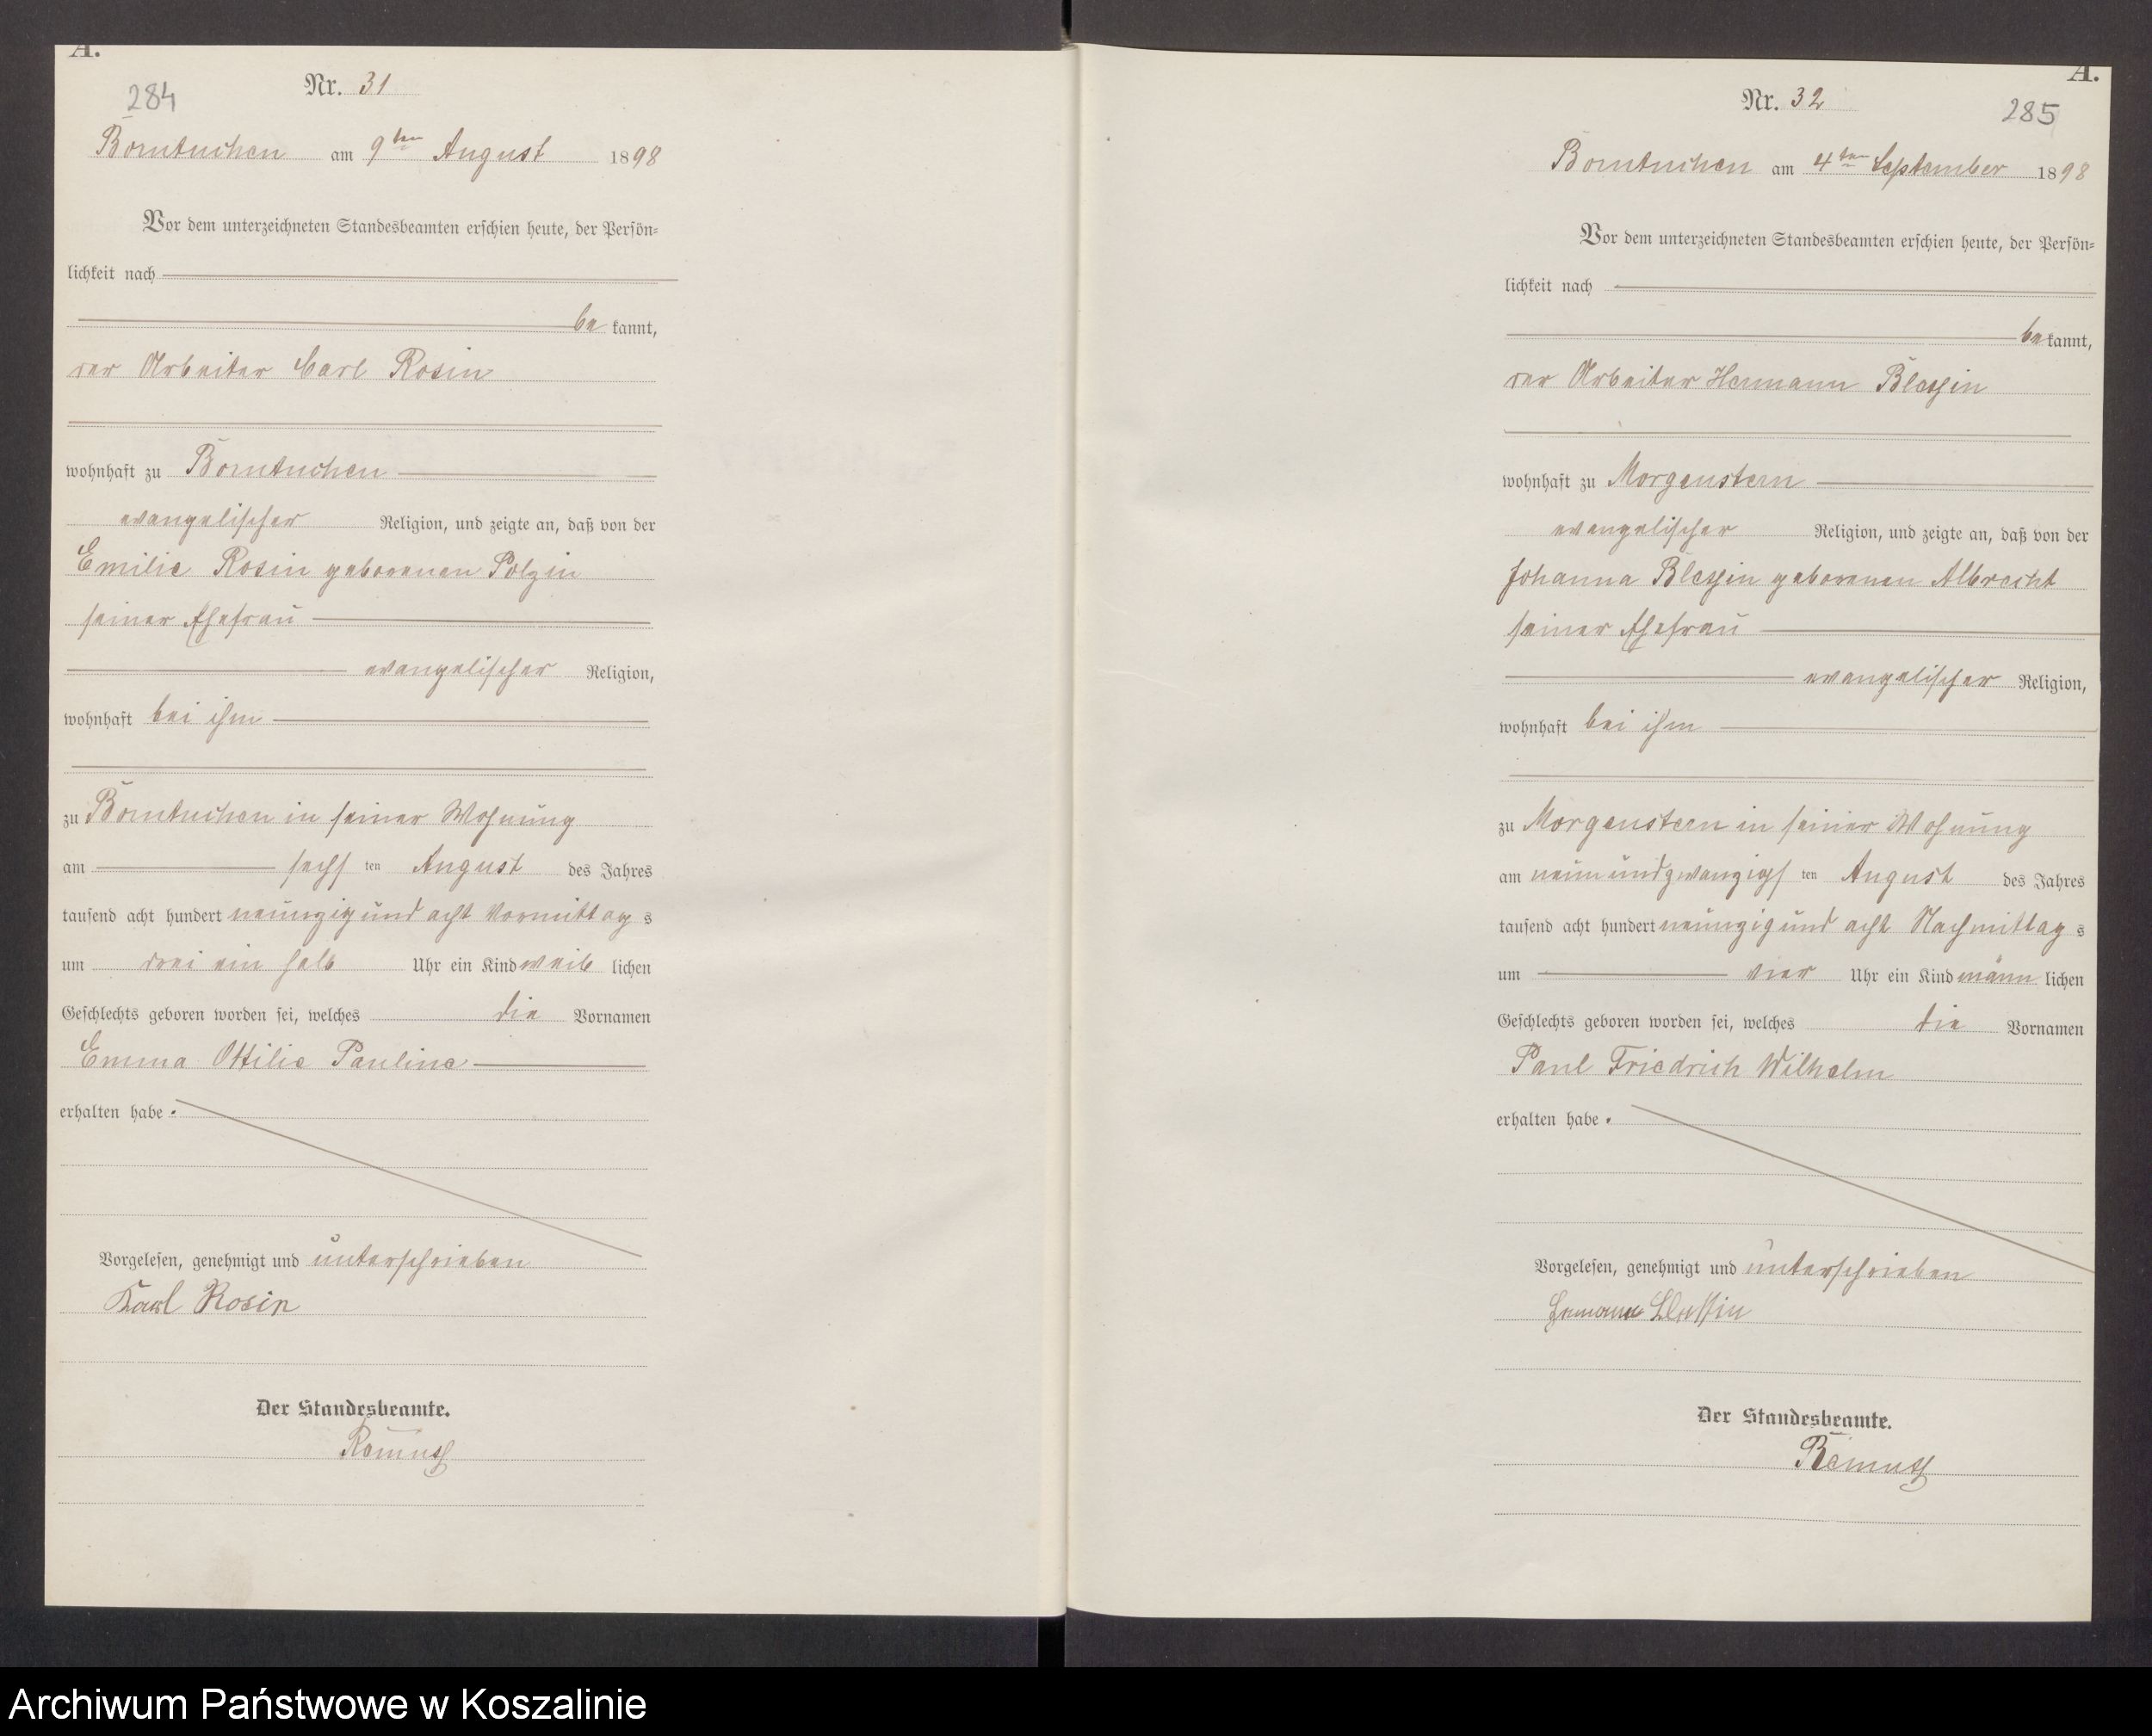 A.
284
Nr. 31
Borntuchen am 9ten August 1898
Vor dem unterzeichneten Standesbeamten erschien heute, der Persön-
lichkeit nach
be kannt,
der Arbeiter Carl Rosin
wohnhaft zu Borntuchen
evangelischer Religion, und zeigte an, daß von der
Emilie Rosin geborenen Polzin
seiner Ehefrau
evangelischer Religion,
wohnhaft bei ihm
zu Borntuchen in seiner Wohnung
am sechs ten August des Jahres
tausend acht hundert neunzig und acht Vormittag s
um drei ein halb Uhr ein Kind weib lichen
Geschlechts geboren worden sei, welches die Vornamen
Emma Ottilie Pauline
erhalten habe.
Vorgelesen, genehmigt und unterschrieben
Karl Rosin
Der Standesbeamte.
A.
Nr. 32
285
Borntuchen am 4ten September 1898
Vor dem unterzeichneten Standesbeamten erschien heute, der Persön-
lichkeit nach
be kannt,
der Arbeiter Hermann Blessin
wohnhaft zu Morgenstern
evangelischer Religion, und zeigte an, daß von der
Johanna Blessin geborenen Albrecht
seiner Ehefrau
evangelischer Religion,
wohnhaft bei ihm
zu Morgenstern in seiner Wohnung
am neunundzwanzigs ten August des Jahres
tausend acht hundert neunzig und acht Nachmittag s
um vier Uhr ein Kind männ lichen
Geschlechts geboren worden sei, welches die Vornamen
Paul Friedrich Wilhelm
erhalten habe.
Vorgelesen, genehmigt und unterschrieben
Hermann Blessin
Der Standesbeamte.
Archiwum Państwowe w Koszalinie